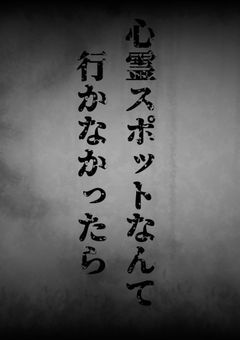 心霊スポットなんて
行かなかったら